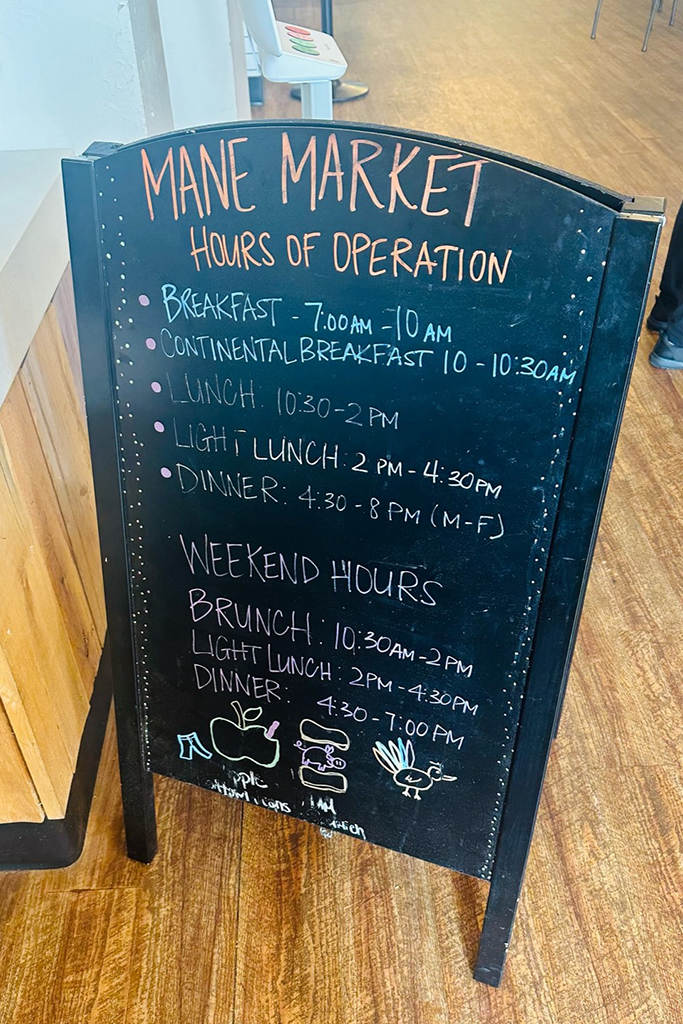 MANE MARKET
HOURS OF OPERATION
• BREAKFAST - 7:00 AM - 10 AM
• CONTINENTAL BREAKFAST 10 - 10:30AM
• LUNCH: 10:30-2 PM
• LIGHT LUNCH: 2 PM - 4:30PM
• DINNER: 4:30 - 8 PM (M-F)
WEEKEND HOURS
BRUNCH: 10:30AM-2PM
LIGHT LUNCH: 2PM-4:30PM
DINNER: 4:30-7:00 PM